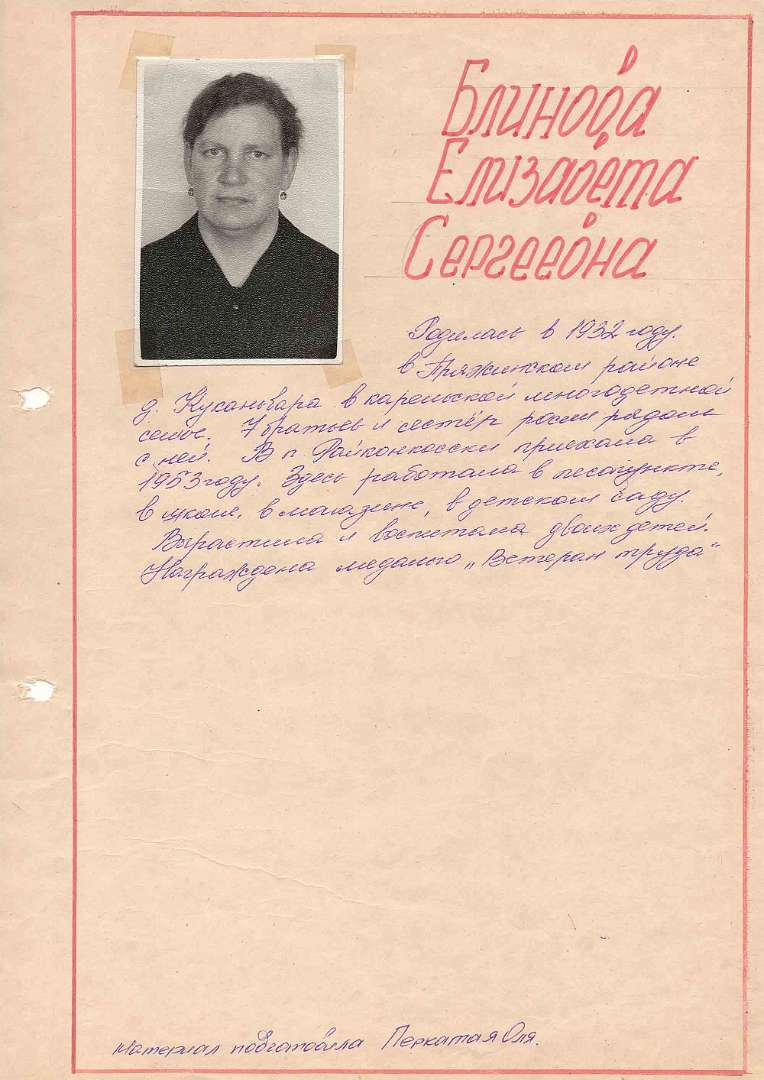 Блинова
Елизавета
Сергеевна
Родилась в 1932 году.
в Пряжинском районе
д. Кусаньвара в карельской многодетной
семье. 7 братьев и сестёр росли рядом
с ней. В п. Райконкоски приехала в
1953 году. Здесь работала в лесопункте,
в школе, в магазине, в детском саду.
Вырастила и воспитала двоих детей.
Награждена медалью „Ветеран труда"
Материал подготовила Перкатая Оля.